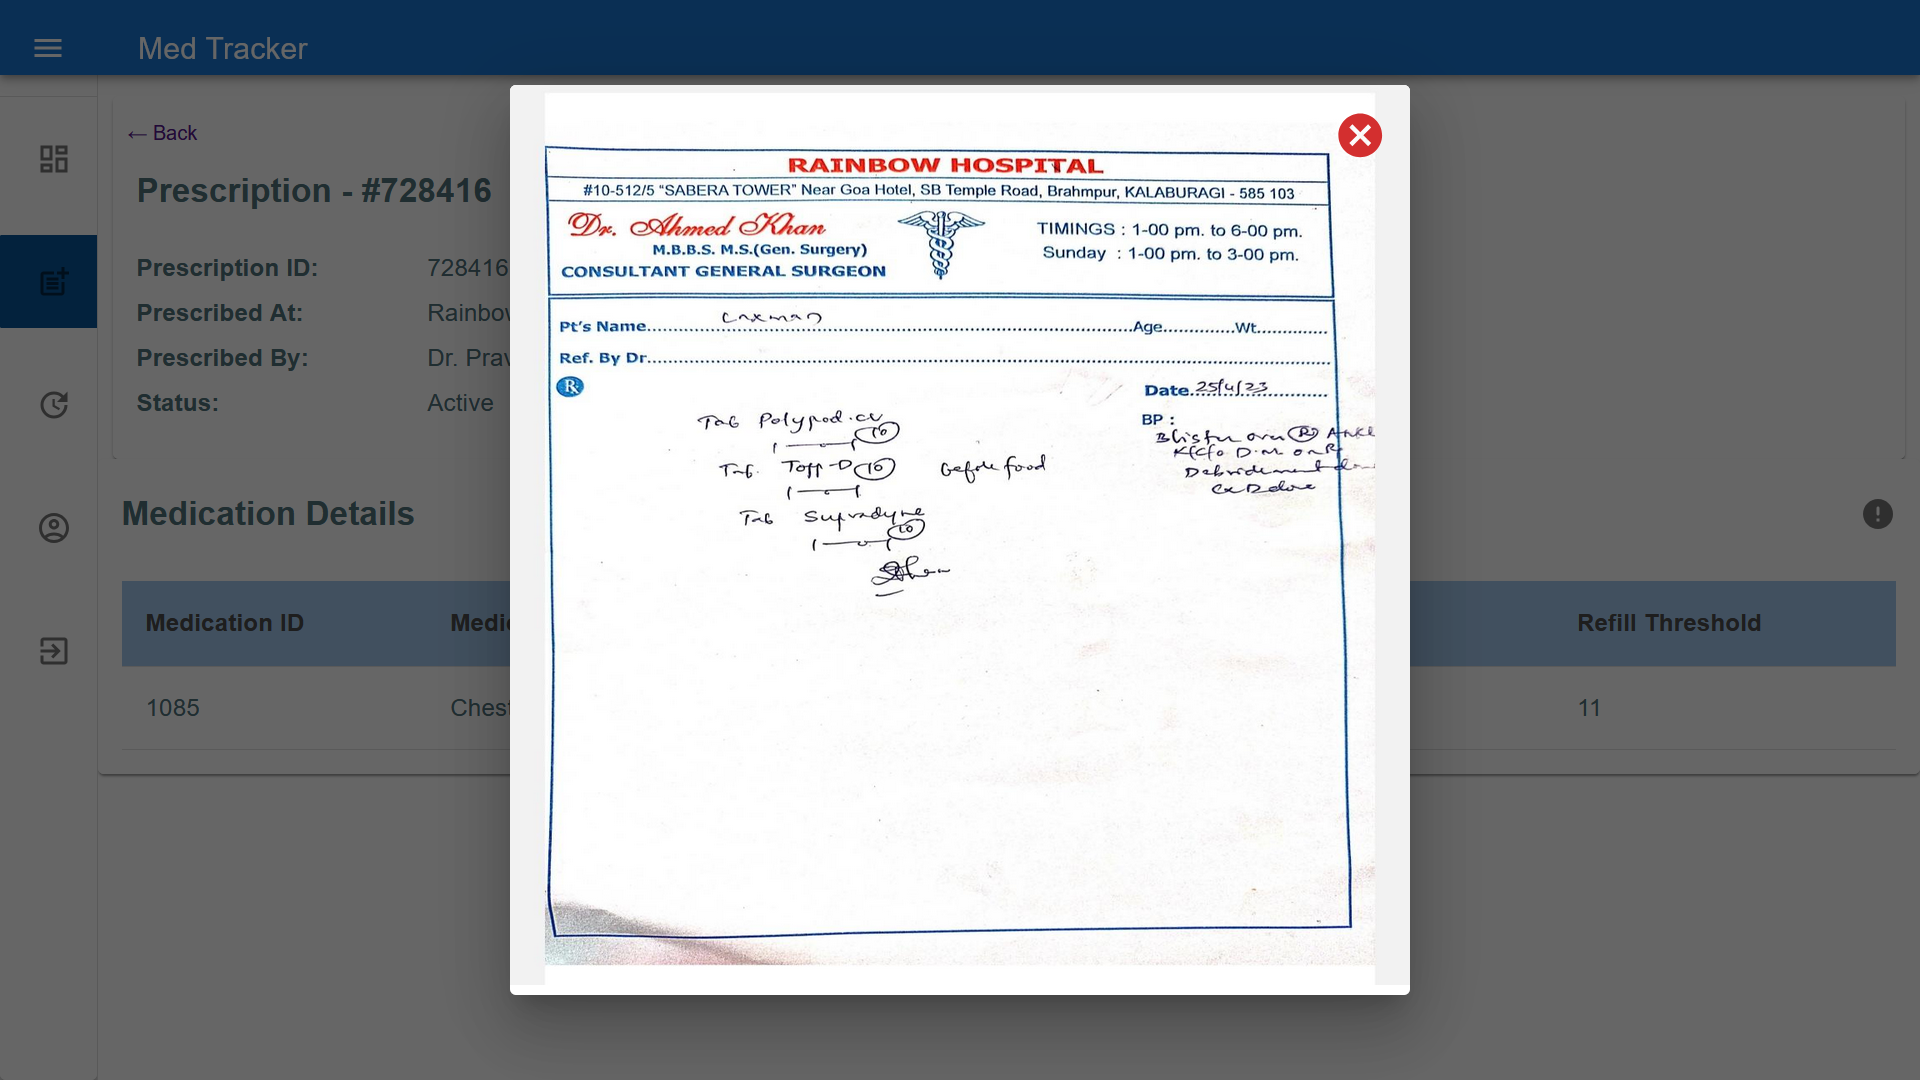 Med Tracker
← Back
Prescription - #728416
Prescription ID: 728416
Prescribed At: Rainbow
Prescribed By: Dr. Prav
Status: Active
Medication Details
Medication ID Medic Refill Threshold
1085 Chest 11
RAINBOW HOSPITAL
#10-512/5 "SABERA TOWER" Near Goa Hotel, SB Temple Road, Brahmpur, KALABURAGI - 585 103
Dr. Ahmed Khan
M.B.B.S. M.S.(Gen. Surgery)
CONSULTANT GENERAL SURGEON
TIMINGS : 1-00 pm. to 6-00 pm.
Sunday : 1-00 pm. to 3-00 pm.
Pt's Name Laxman Age Wt
Ref. By Dr
Rx
Date 25/4/23
Tab Polypod.cv
10
Tab. Topp-D 10 before food
Tab Supradyne
10
BP :
Blister over R Ankl
K/c/o D.M on R
Debridement don